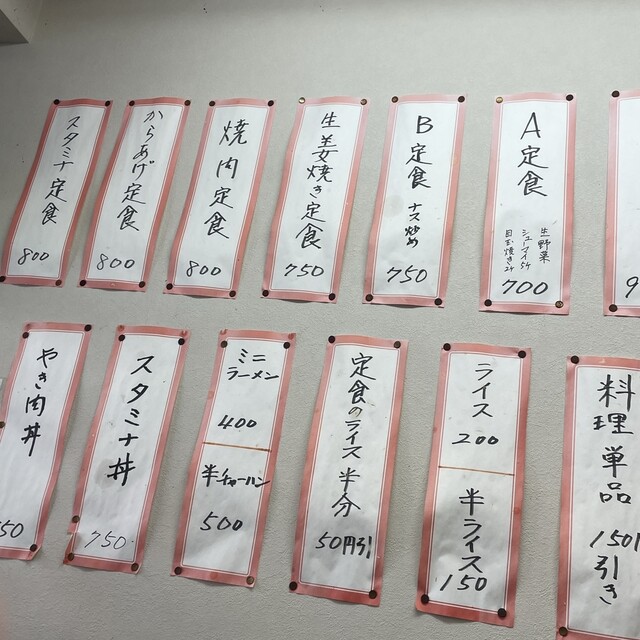 A定食
生野菜
シューマイ5ケ
目玉焼き2ケ
700
B定食 ナス炒め
750
生姜焼き定食
750
焼肉定食
800
からあげ定食
800
スタミナ定食
800
料理単品
引き
ライス
200
半ライス
150
定食のライス半分
50円引
ミニ
ラーメン
400
半チャーハン
500
スタミナ丼
750
やき肉丼
50